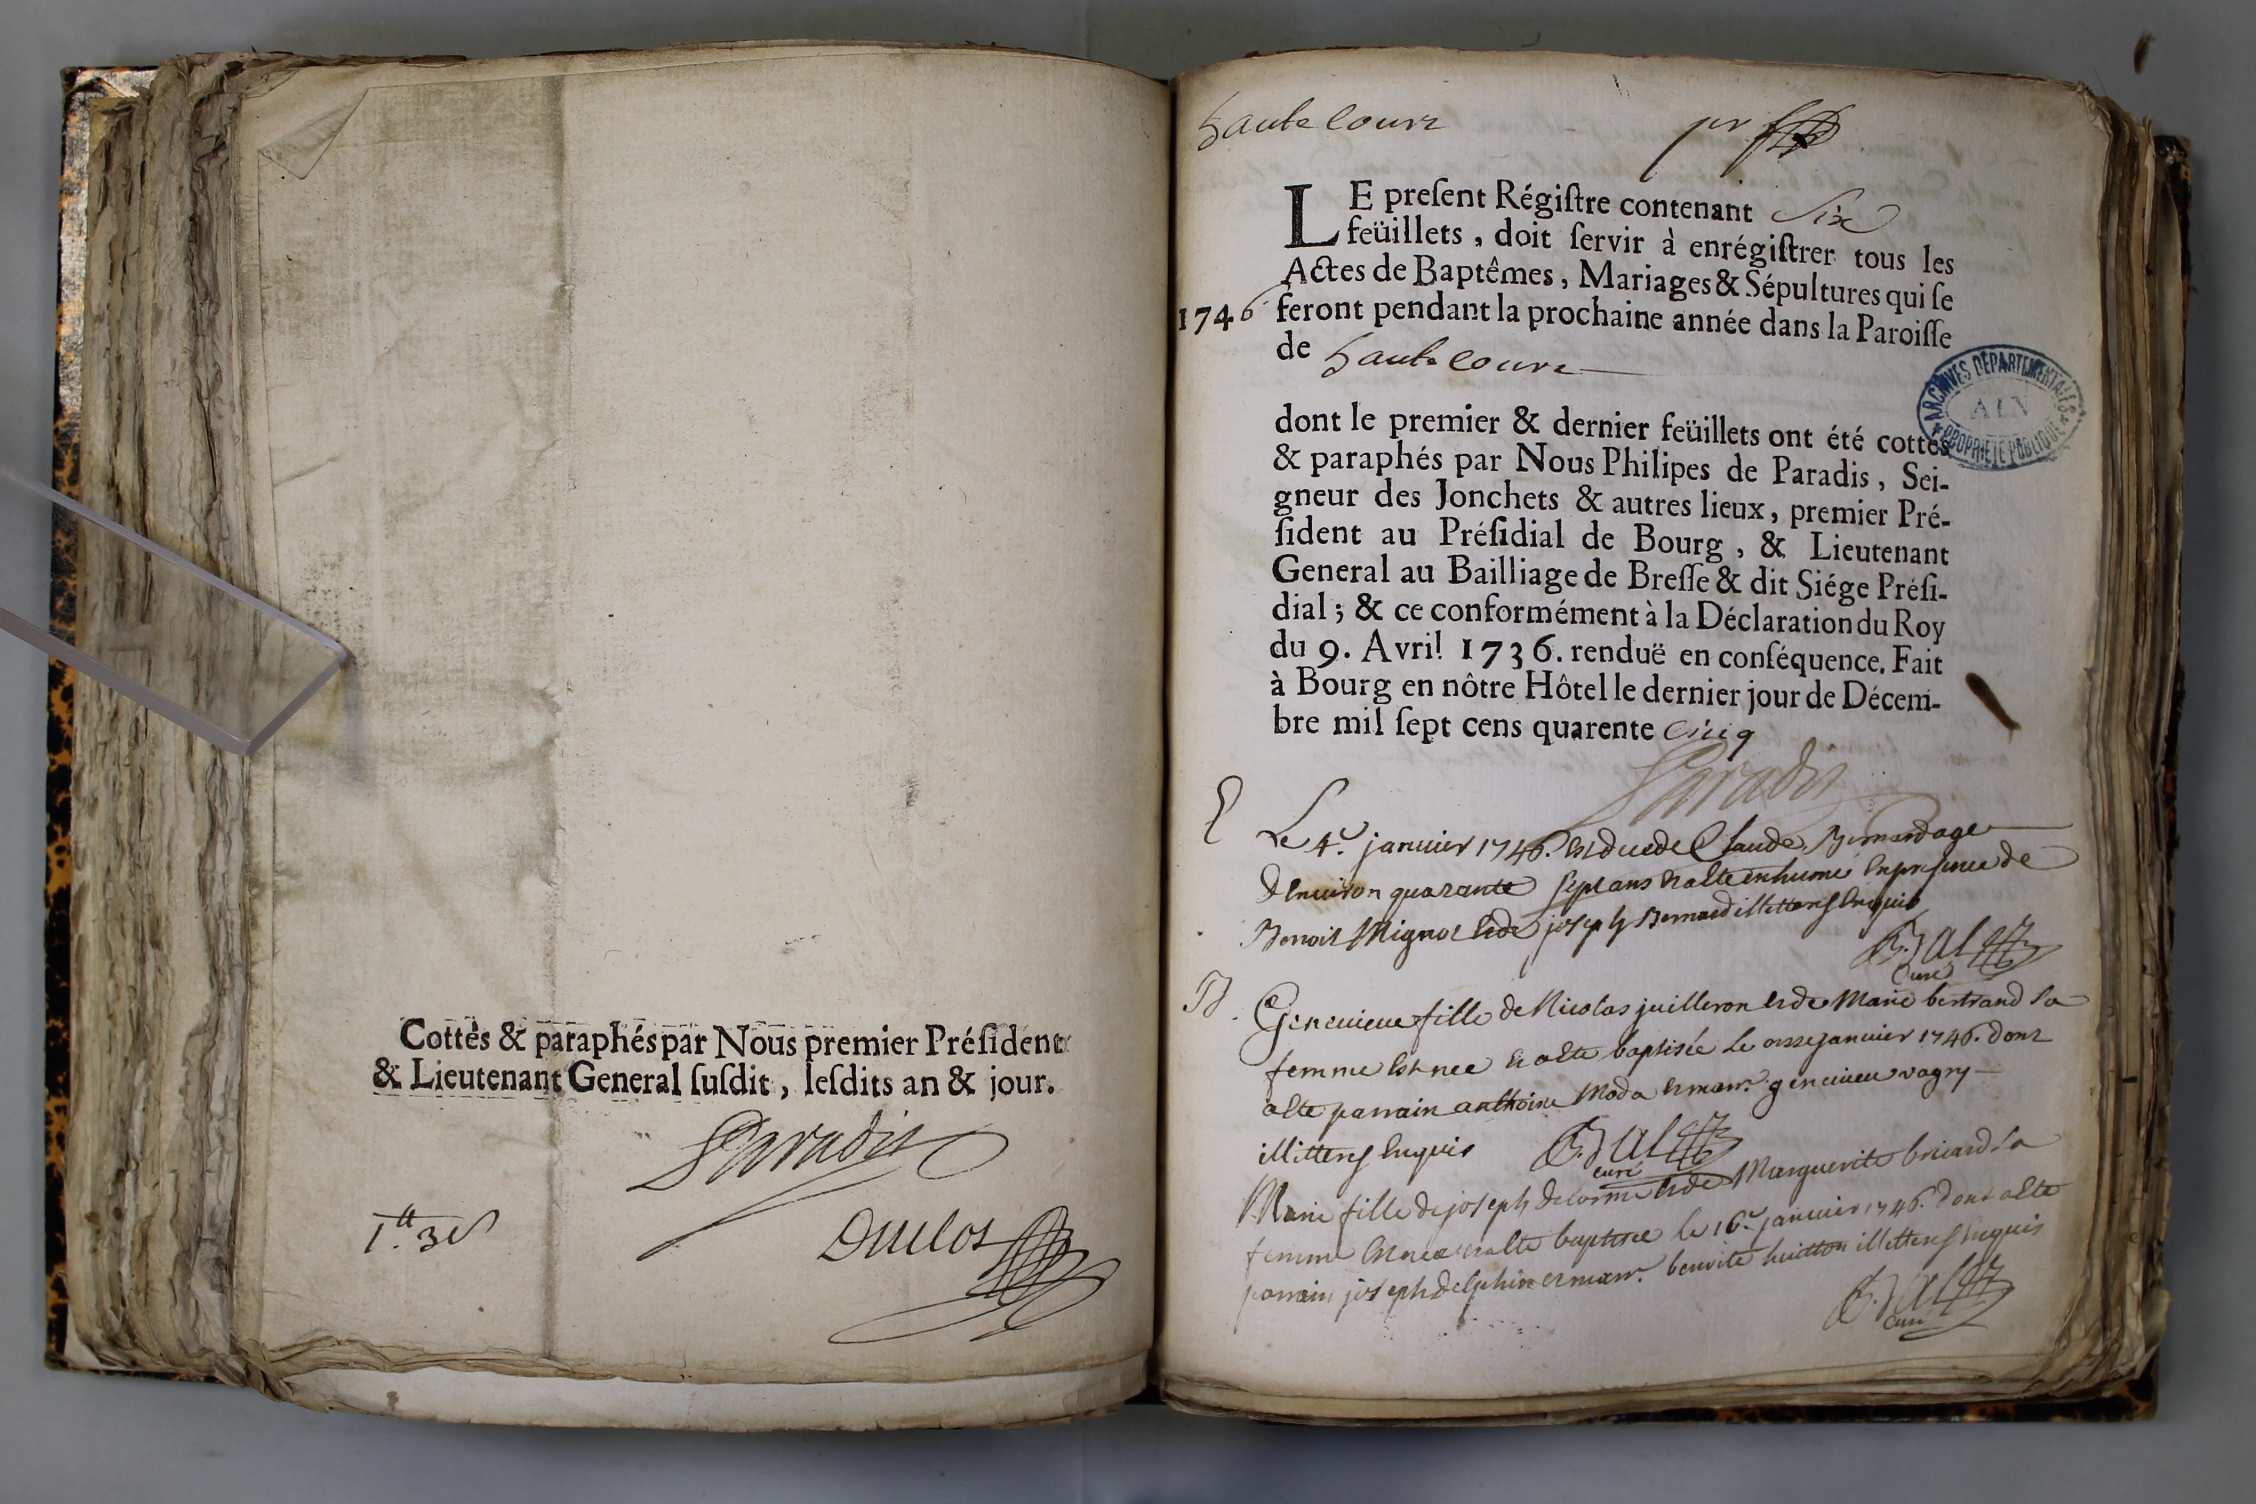 Cottés & paraphés par Nous premier Président
& Lieutenant General susdit, lesdits an & jour.
Paradis
Duclos
haute Courz
pr
LE present Régistre contenant Six
feüillets, doit servir à enrégistrer tous les
Actes de Baptêmes, Mariages & Sépultures qui se
1746 feront pendant la prochaine année dans la Paroisse
de haute Courz
dont le premier & dernier feüillets ont été cottés
& paraphés par Nous Philipes de Paradis, Sei-
gneur des Jonchets & autres lieux, premier Pré-
sident au Présidial de Bourg, & Lieutenant
General au Bailliage de Bresse & dit Siége Prési-
dial; & ce conformément à la Déclaration du Roy
du 9. Avril 1736. renduë en conséquence. Fait
à Bourg en nôtre Hôtel le dernier jour de Décem-
bre mil sept cens quarente Cinq
Paradis
ARCHIVES DÉPARTEMENTALES
AIN
PROPRIÉTÉ PUBLIQUE
Le 4e. janvier 1746. Claude Bernard age
denviron quarante sept ans enhumé en presence de
Benoit Mignot et de joseph Bernard illitterés enquis
curé
B. Genevieve fille de Nicolas juilleron et de Marie bertrand sa
femme est nee et a ete baptisée le onze janvier 1746. dont
a ete parrain anthoine Moda et marr. genevieve vagry
illitterés enquis
curé
Marie fille de joseph delorme et de Marguerite briard sa
femme est nee et a ete baptisee le 16e janvier 1746. dont a ete
parrain joseph delphin et marr. benoite huitton illitterés enquis
curé